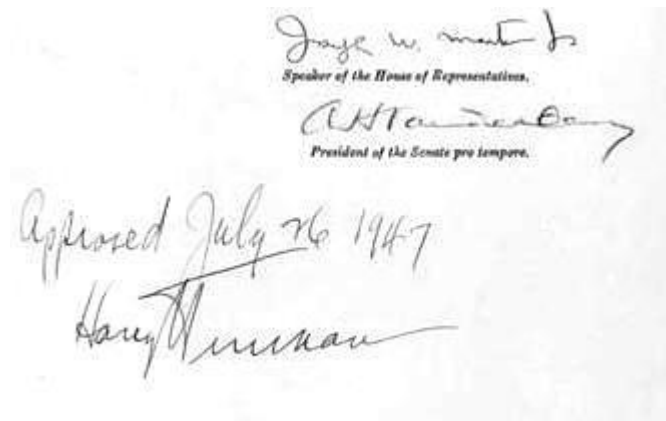 Joseph W. Martin Jr
Speaker of the House of Representatives.
AHVandenberg
President of the Senate pro tempore.
Approved July 26 1947
Harry Truman